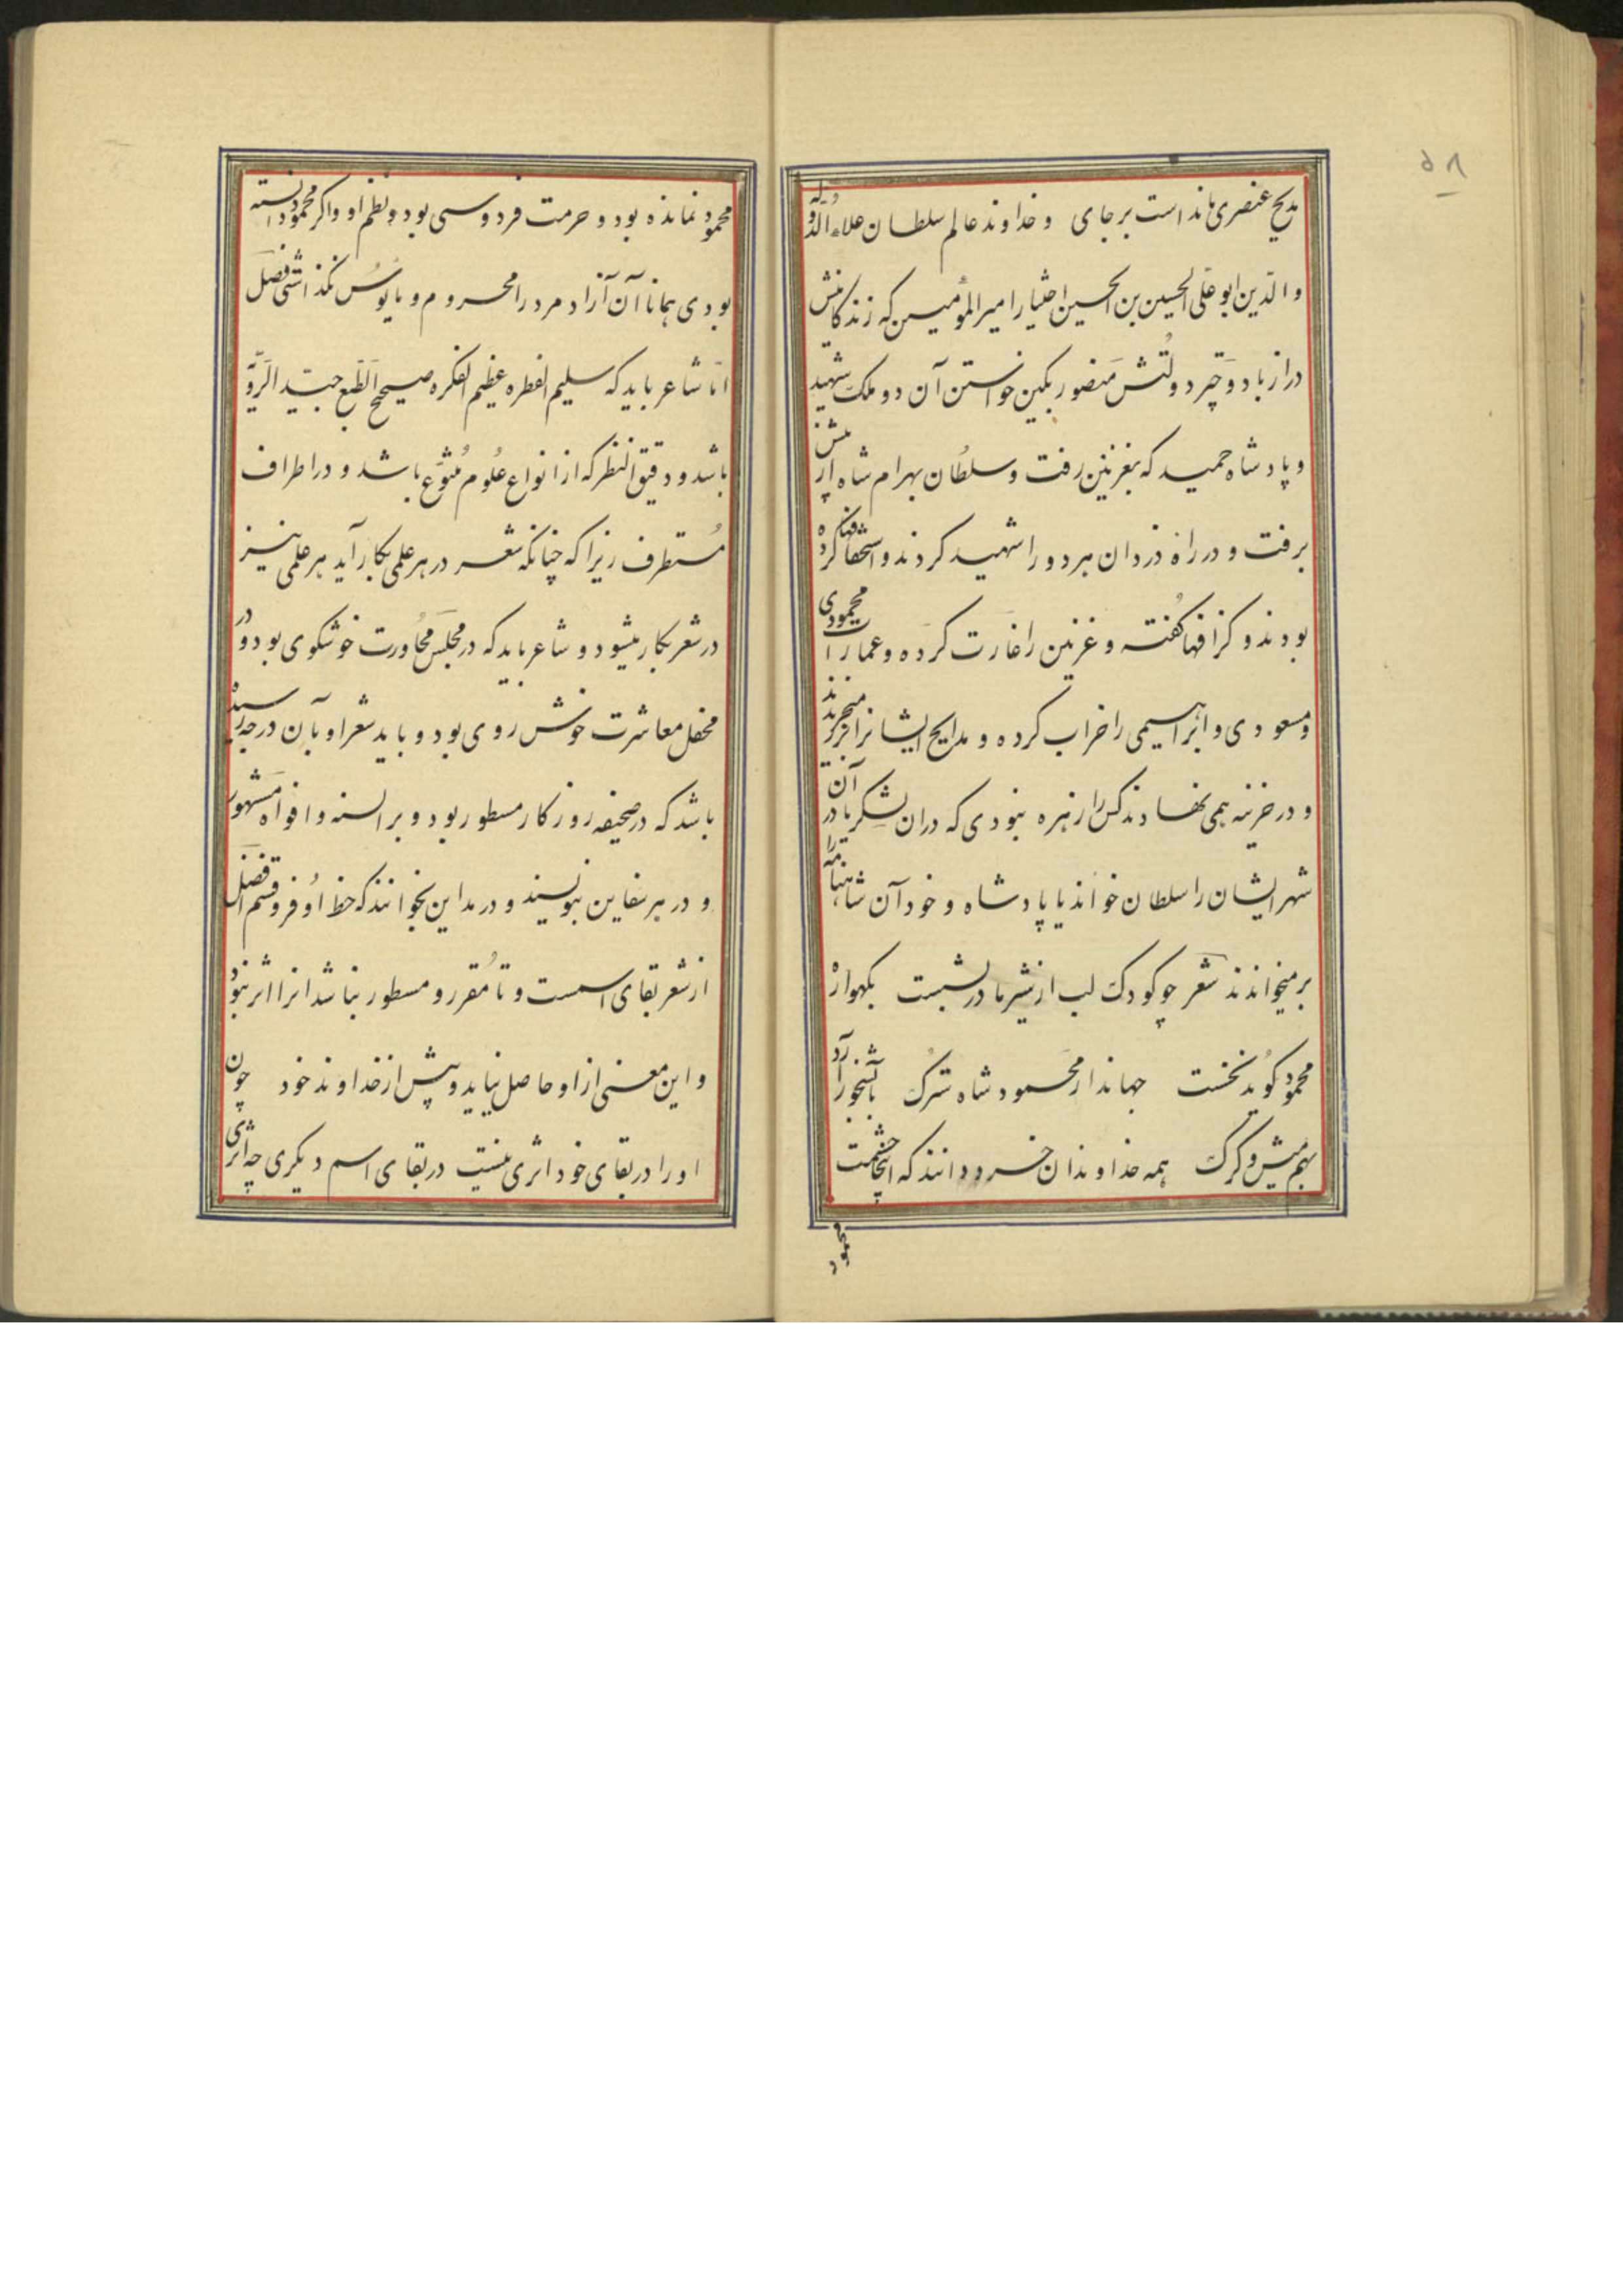 ۵۸
مدیح عنصری مانداست برجای و خداوند عالم سلطان علاء الدوله
والدین ابو علی الحسین بن الحسین اختیار امیر المؤمین که زندکانیش
دراز باد و چتر دولتش منصور بکین خواستن آن دو ملک شهید
و پادشاه حمید که بغزنین رفت و سلطان بهرام شاه از پیش
برفت و در راه دزدان هردو را شهید کردند و استخفافها کرده
بودند و کزافها کفته و غزنین را غارت کرده و عمارات محمودی
و مسعودی و ابراهیمی را خراب کرده و مدایح ایشانرا بزر میخریدند
و در خزینه همی نهادند کس را زهره نبودی که دران لشکر یا در آن
شهر ایشان را سلطان خواند یا پادشاه و خود آن شاهنامه را
برمیخواندند شعر چو کودک لب از شیر مادر بشست بکهواره
محمود کوید نخست جهاندار محمود شاه سترک بآبشخور آرد
بهم میش و کرک همه خداوندان خرد دانند که اینجا حشمت
محمود
محمود نمانده بود و حرمت فردوسی بود و نظم او و اکر محمود دانسته
بودی همانا آن آزاد مرد را محروم و مایوس نکذاشتی فصل
امّا شاعر باید که سلیم الفطره عظیم الفکره صحیح الطّبع جیّد الرّویّه
باشد و دقیق النظر که از انواع علوم متنوّع باشد و در اطراف
مستطرف زیرا که چنانکه شعر در هر علمی بکار آید هر علمی نیز
در شعر بکار میشود و شاعر باید که در مجلس محاورت خوشکوی بود و در
محفل معاشرت خوش روی بود و باید شعر او بآن درجه رسیده
باشد که در صحیفه روزکار مسطور بود و بر السنه و افواه مشهور
و در هر سفاین بنویسند و در مداین بخوانند که حظ اوفر و قسم افضل
از شعر بقای اسمست و تا مقرر و مسطور نباشد انرا اثر نبود
و این معنی از او حاصل نیاید و پیش از خداوند خود چون
او را در بقای خود اثری نیست در بقای اسم دیکری چه اثری